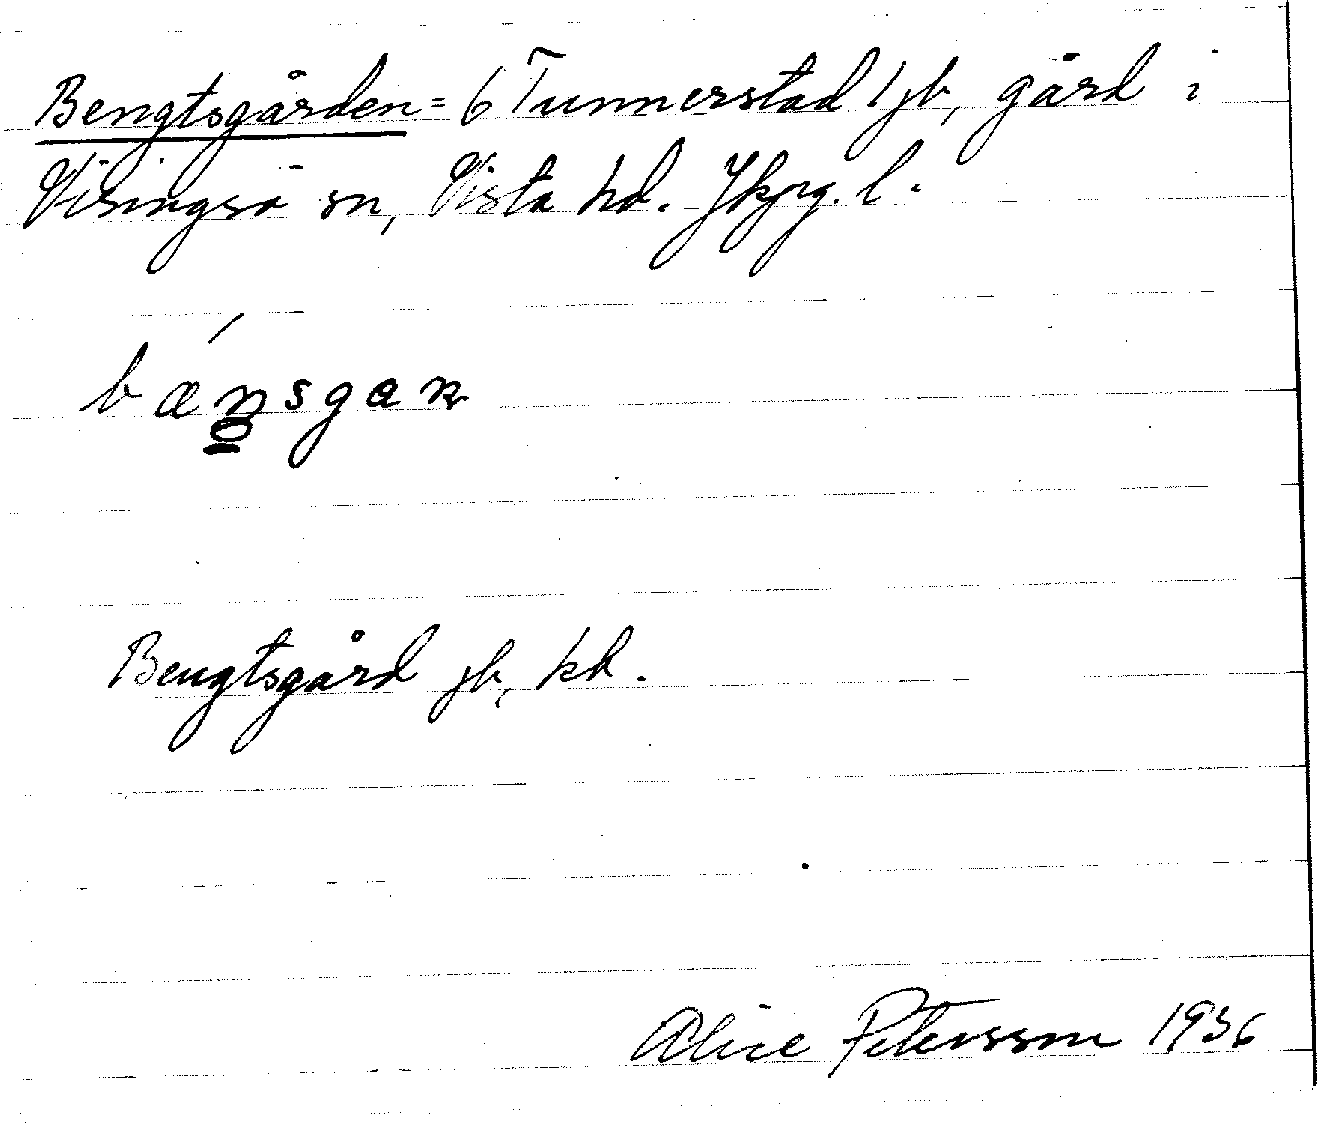 Bengtsgården = 6 Tunnerstad 1 jb, gård i
Visingsö sn, Vista hd. Jkpg. l.
bænsgan
Bengtsgård jb, kd.
Alice Petersson 1936